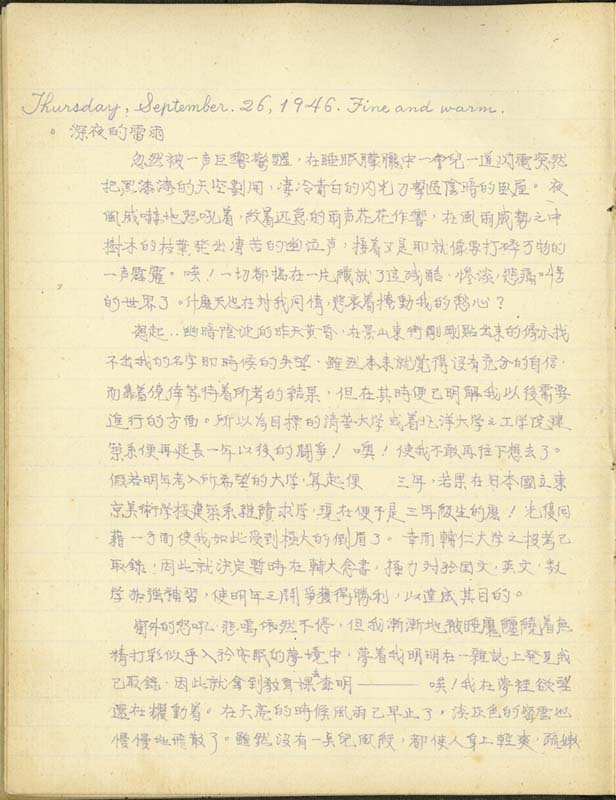 Thursday, September. 26, 1946. Fine and warm.
。深夜的雷雨
忽然被一声巨響驚醒，在睡眠朦朧中一會兒一道閃電突然
把黑漆漆的天空劃開，凄冷青白的閃光刀擊過陰暗的臥屋。夜
風咸嚇地怒吼着，敘着迅急的雨声花花作響，在風雨威勢之中
樹木的枝葉発出凄苦的幽泣声，接着又是那就像要打碎万物的
一声霹靂。唉！一切都搗在一片殘酷，慘淡，悲痛。
的世界了。什麼天也在対我同情，悲哀着擾動我的愁心？
想起‥幽暗陰沈的昨天黄昏，在景山東街剛剛點出來的榜示找
不出我的名字即時候的失望，雖然本來就覺得没有充分的自信，
而靠着僥倖等待着所考的結果，但在其時便已明解我以後需要
進行的方面。所以為目標的清華大学或着北洋大学之工学院建
築系便再延長一年以後的鬪爭！噢！使我不敢再往下想去了。
假若明年考入所希望的大学，算起便 三年，若果在日本國立東
京美術学校建築系継續求学，現在便不是三年級生的麼！光復同
藉一方面使我如此受到極大的倒眉了。幸而輔仁大学之投考已
取録，因此就決定暫時在輔大念書，極力対於国文，英文，数
学加強補習，使明年之鬪爭獲得勝利，以達成其目的。
窗外的怒吼，悲鳴依然不停，但我漸漸地被睡魔纏繞着無
精打彩似乎入於安眠的夢境中，夢着我明明在一雜誌上発見成
已取録，因此就拿到教育課去查明———唉！我在夢裡欲望
還在耀動着。在天亮的時候風雨已早止了。淡灰色的密雲也
慢慢地飛散了。雖然没有一点兒風紋，都使人身上輕爽，疏嫩